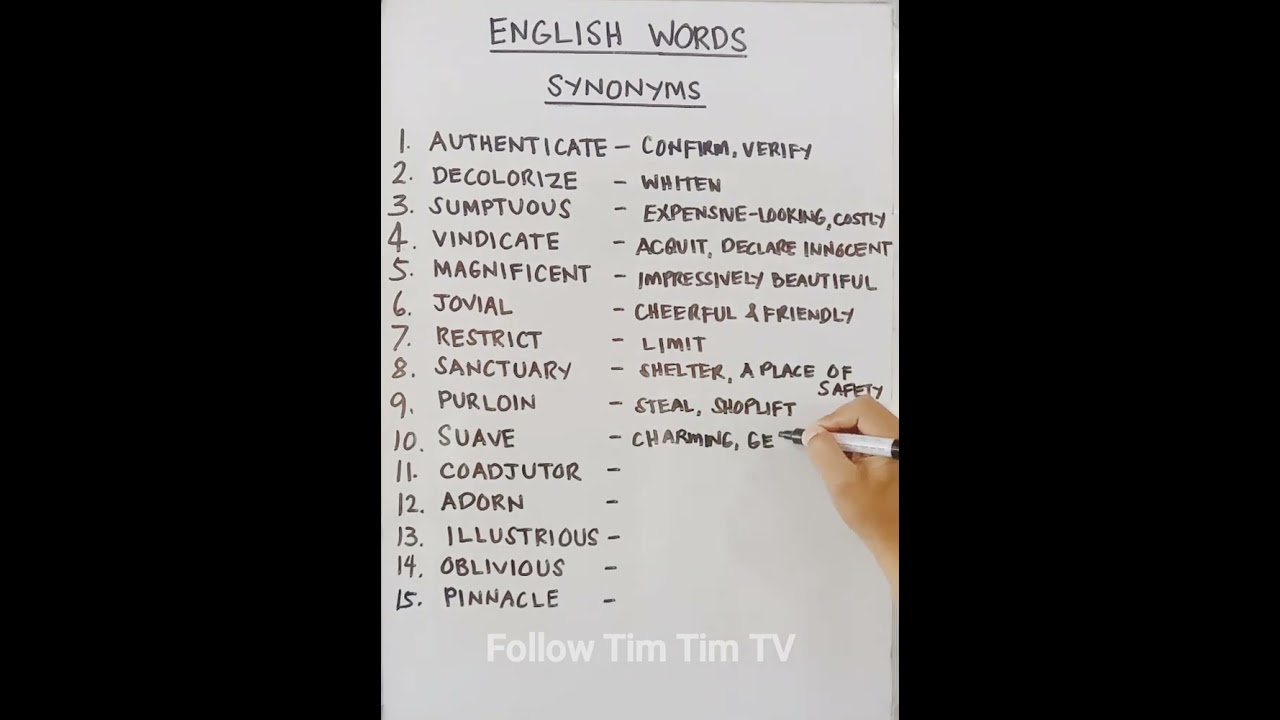 ENGLISH WORDS
SYNONYMS
1. AUTHENTICATE - CONFIRM, VERIFY
2. DECOLORIZE - WHITEN
3. SUMPTUOUS - EXPENSIVE-LOOKING, COSTLY
4. VINDICATE - ACQUIT, DECLARE INNOCENT
5. MAGNIFICENT - IMPRESSIVELY BEAUTIFUL
6. JOVIAL - CHEERFUL & FRIENDLY
7. RESTRICT - LIMIT
8. SANCTUARY - SHELTER, A PLACE OF
SAFETY
9. PURLOIN - STEAL, SHOPLIFT
10. SUAVE - CHARMING, GE
11. COADJUTOR -
12. ADORN -
13. ILLUSTRIOUS -
14. OBLIVIOUS -
15. PINNACLE -
Follow Tim Tim TV